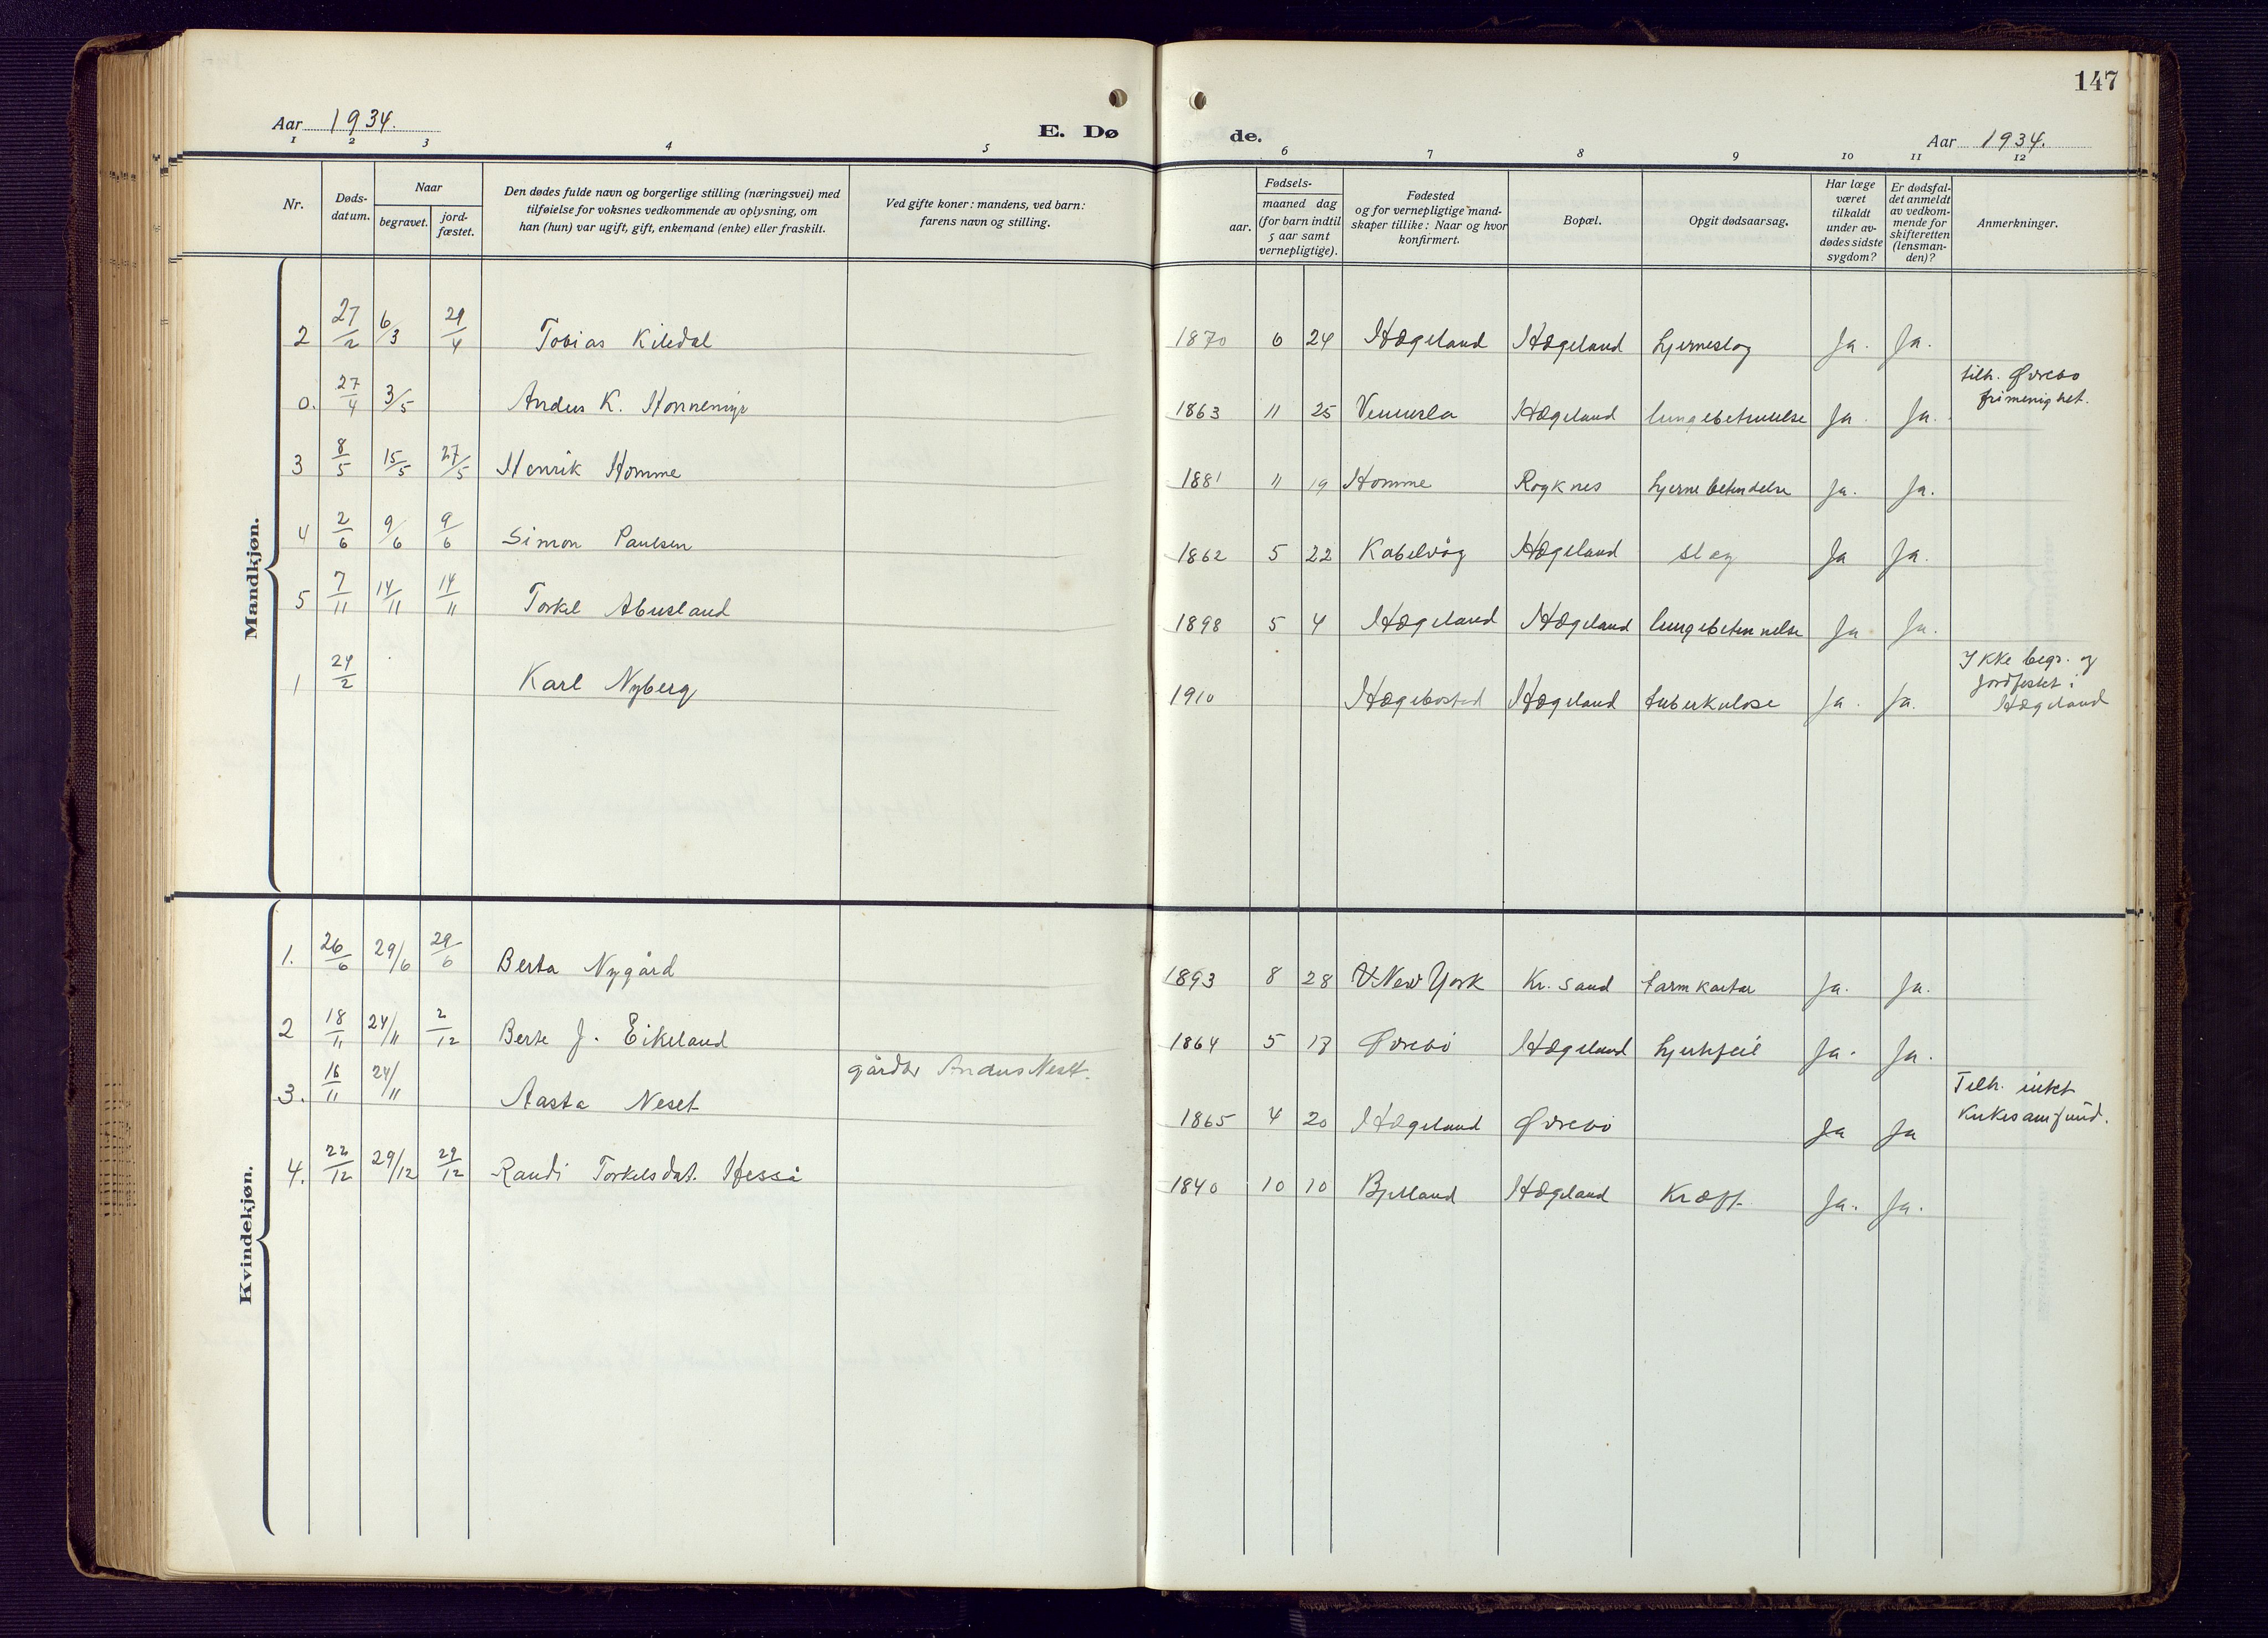 147
Aar 1934.
E. Dø
de.
Aar 1934.
1 2 3 4 5
6 7 8 9 10 11 12
Nr.
Døds-
datum.
Naar
begravet.
jord-
fæstet.
Den dødes fulde navn og borgerlige stilling (næringsvei) med
tilføielse for voksnes vedkommende av oplysning, om
han (hun) var ugift, gift, enkemand (enke) eller fraskilt.
Ved gifte koner: mandens, ved barn:
farens navn og stilling.
Fødsels-
aar.
maaned dag
(for barn indtil
5 aar samt
vernepligtige).
Fødested
og for vernepligtige mand-
skaper tillike: Naar og hvor
konfirmert.
Bopæl.
Opgit dødsaarsag.
Har læge
været
tilkaldt
under av-
dødes sidste
sygdom?
Er dødsfal-
det anmeldt
av vedkom-
mende for
skifteretten
(lensman-
den)?
Anmerkninger.
Mandkjøn.
2 27/2 6/3 29/4 Tobias Kiledal 1870 6 24 Hægeland Hægeland hjerneslag Ja. Ja.
0. 27/4 3/5 Anders K. Honnemyr 1863 11 25 Vennesla Hægeland lungebetennelse Ja. Ja. tilh. Øvrebo
frimenighet.
3 8/5 15/5 27/5 Henrik Homme 1881 11 19 Homme Røyknes hjernebetendelse Ja. Ja.
4 2/6 9/6 9/6 Simon Paulsen 1862 5 22 Kabelvåg Hægeland slag Ja Ja.
5 7/11 14/11 14/11 Torkel Abusland 1898 5 4 Hægeland Hægeland lungebetennelse Ja Ja.
1 24/2 Karl Nyberg 1910 Hægebostad Hægeland tuberkulose Ja. Ja. Ikke begr. og
jordfestet i
Hægeland
Kvindekjøn.
1. 26/6 29/6 29/6 Berta Nygård 1893 8 28 New York Kr. sand tarmkatar Ja. Ja.
2 18/11 24/11 2/12 Berte J. Eikeland 1864 5 Øvrebö Hægeland hjertefeil Ja. Ja.
3. 16/11 24/11 Aasta Neset gårdbr Anders Neset. 1865 4 20 Hægeland Øvrebö Ja Ja Tilh. intet
kirkesamfund.
4. 22/12 29/12 29/12 Randi Torkelsdat. Hesså 1840 10 10 Bjelland Hægeland Kræft Ja. Ja.